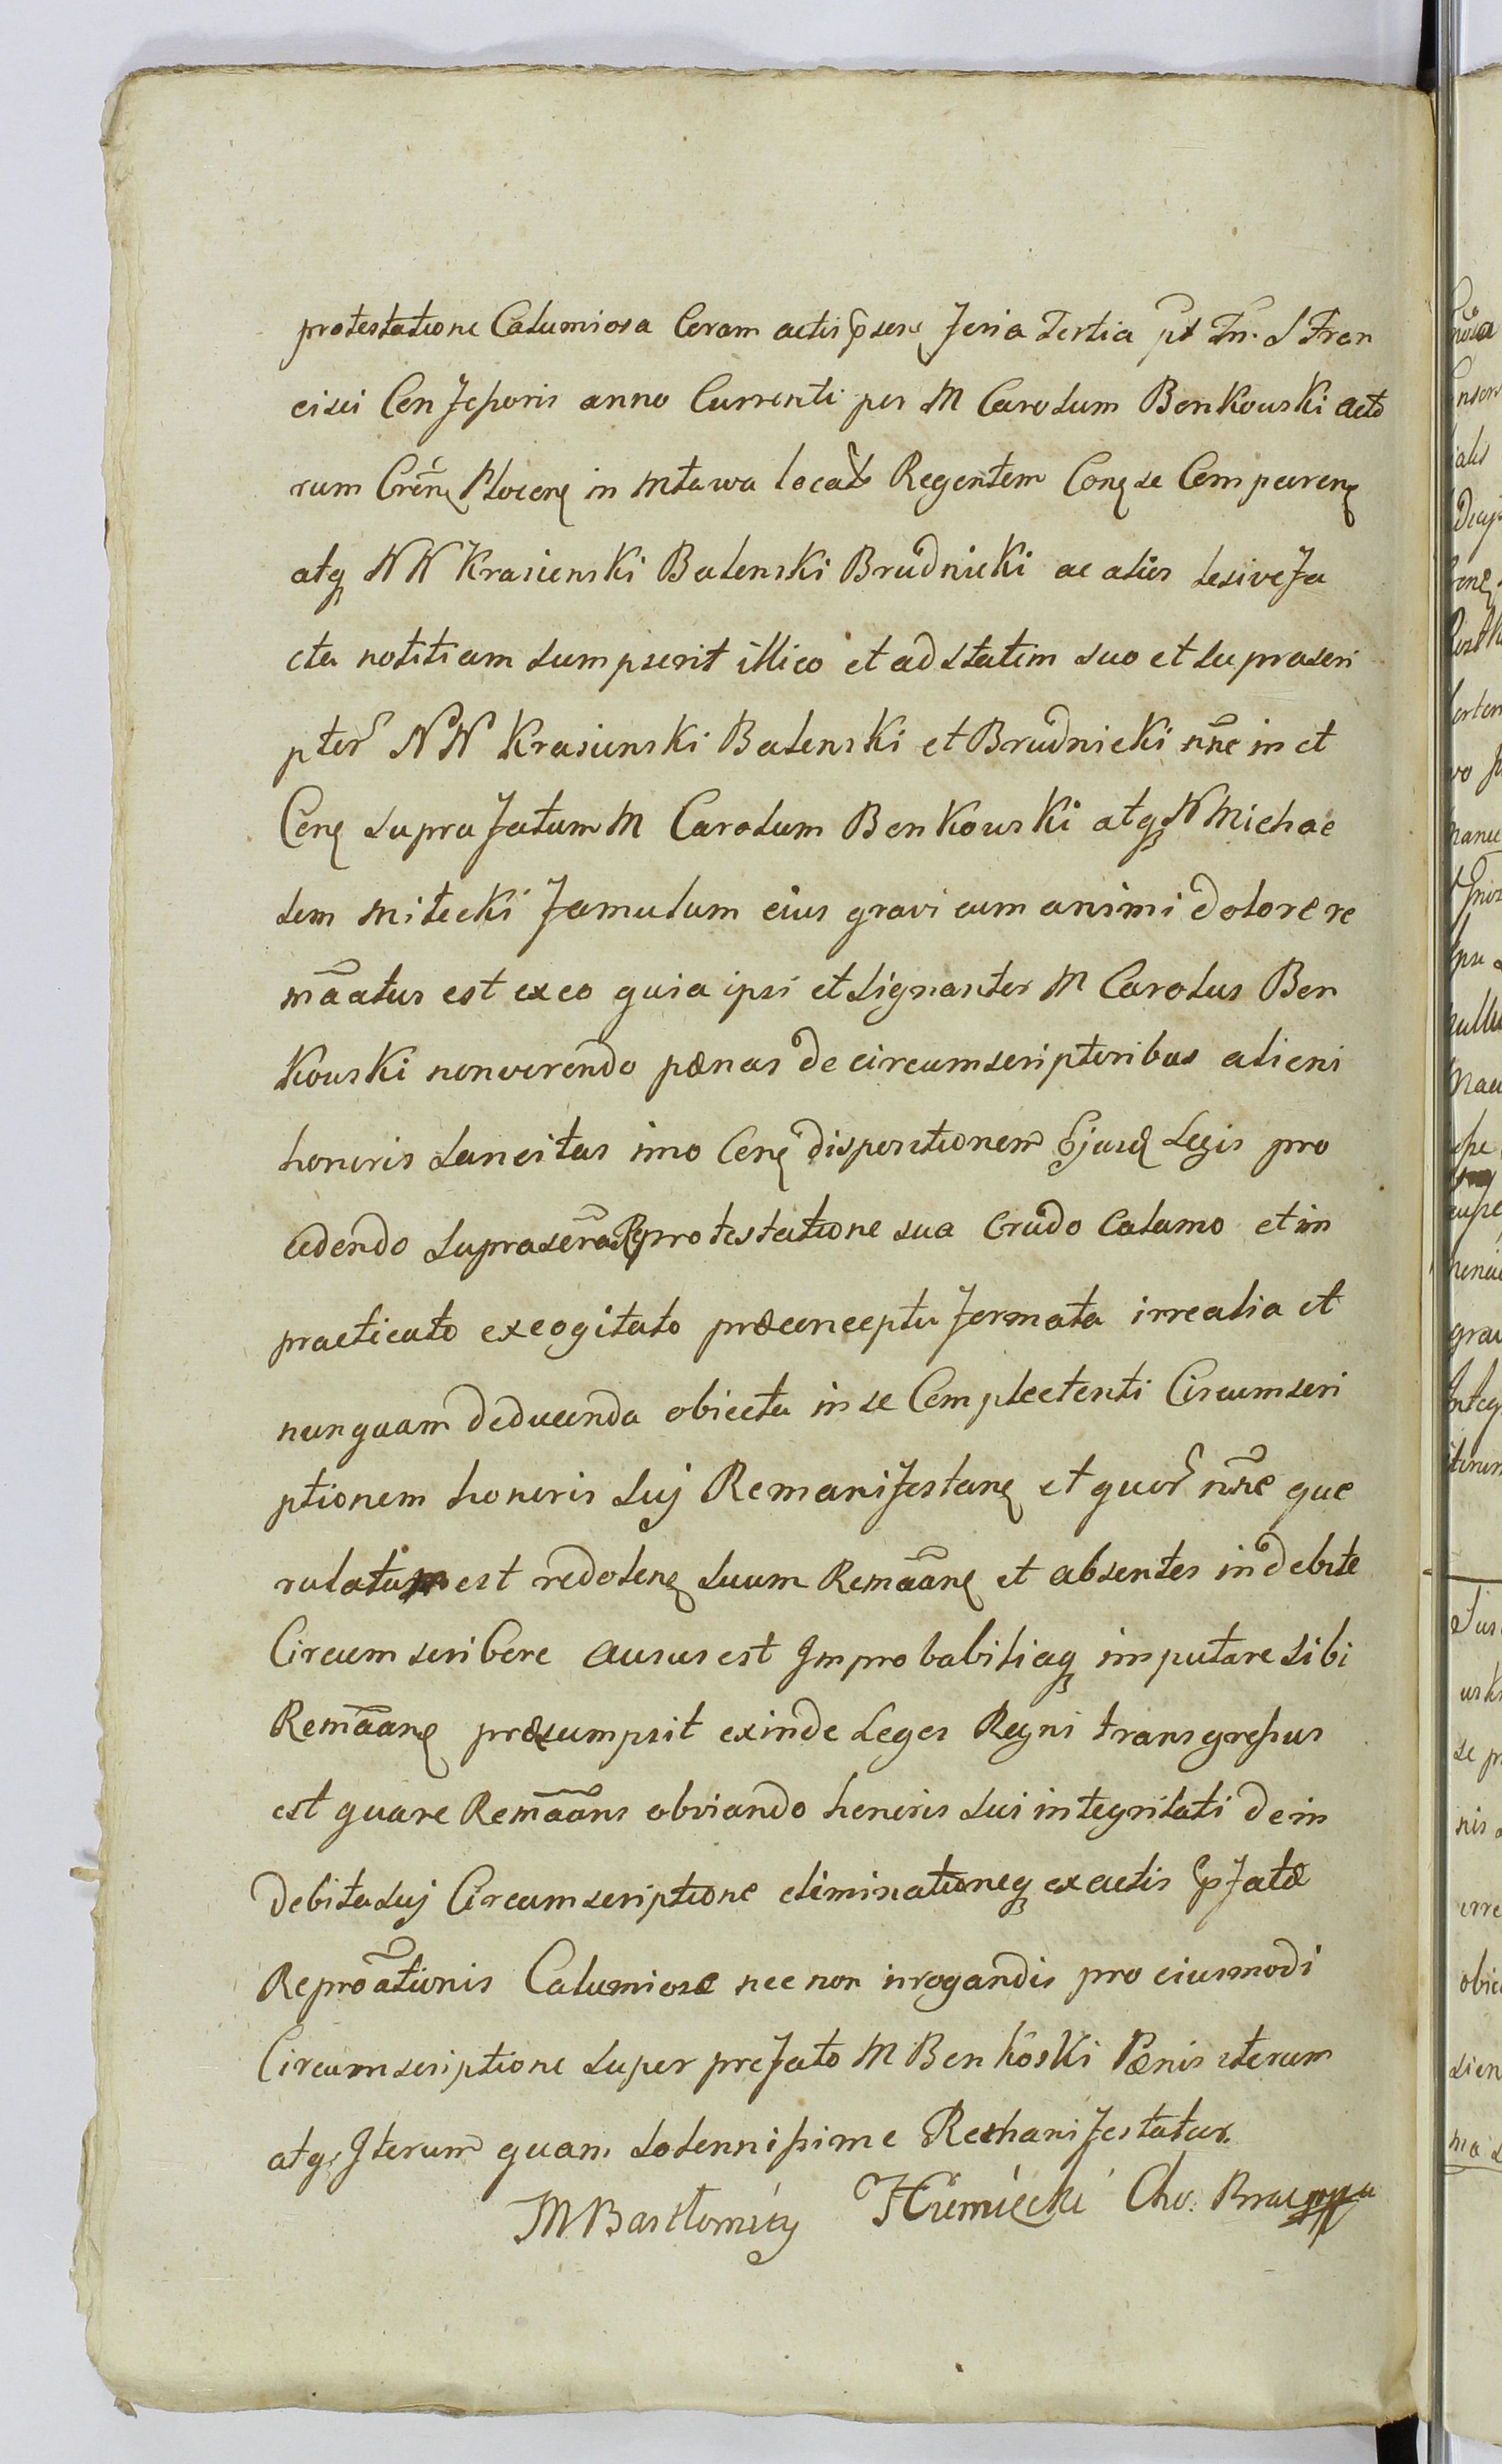 protestatione Calumiosa Coram actis pzsens Feria Tertia pt Fn. S Fran
cisci Confessoris anno Currenti per M Carolum Bonkowski acto
rum Crēn Plocen in Mława locat Regentem Con se Comparen
atq NN Krasienski Balenski Brudnicki ac alios lesive fa
cta notitiam sumpserit illico et adstatim suo et suprascri
ptor NN Krasienski Balenski et Brudnicki nne in et
Con supra fatum M Carolum Bonkowski atq N Michae
lem Milecki famulum eius gravi cum animi dolore re
mãatus est ex eo quia ipsi et signanter M Carolus Bon
kowski non verendo pænas de circumscriptoribus alieni
honoris sancitas imo Con dispositionem ejusd Legis pro
cedendo suprascra Reprotestatione sua Crudo Calamo et in
practicato excogitato præconceptu formata irrealia et
nunquam deducenda obiecta in se Complectenti Circumscri
ptionem honoris suj Remanifestan et quor nne que
rulatum est redolen suum Remãan et absentes indebite
Circumscribere ausus est Improbabiliaq imputare sibi
Remãan præsumpsit exinde Leges Regni transgressus
est quare Remãans obviando honoris sui integritati de in
debita suj Circumscriptione eliminationeq ex actis pfatæ
Reprõationis Calumiosæ nec non irrogandis pro eiusmodi
Circumscriptione super prefato M Benkoski Pænis iterum
atq Iterum quam solennissime Remanifestatur.
MBartłomiey Humięcki Cho.